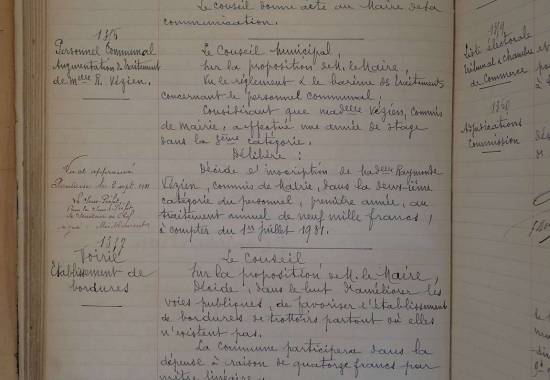 Le Conseil donne acte au Maire de la
communication.
1376
Personnel Communal
Augmentation de traitement
de Melle R. Vézien.
Le Conseil Municipal,
Sur la proposition de M. le Maire,
Vu le règlement & le barème des traitements
concernant le personnel communal,
Considérant que Mademoiselle Vézien, commis
de Mairie, a effectué une année de stage
dans la 3ème catégorie.
Délibère :
Décide l'inscription de Madelle Raymonde
Vézien, commis de Mairie, dans la deuxième
catégorie du personnel, première année, au
traitement annuel de neuf mille francs,
à compter du 1er Juillet 1931.
Vu et approuvé
Le Sous-Préfet,
1377
Voirie
Etablissement de
bordures
Le Conseil
Sur la proposition de M. le Maire,
Décide, dans le but d'améliorer les
voies publiques, de favoriser l'établissement
de bordures de trottoirs partout où elles
n'existent pas.
La Commune participera dans la
dépense à raison de quatorze francs par
mètre linéaire
Liste électorale
Tribunal & Chambre
de Commerce
Adjudications
Commission